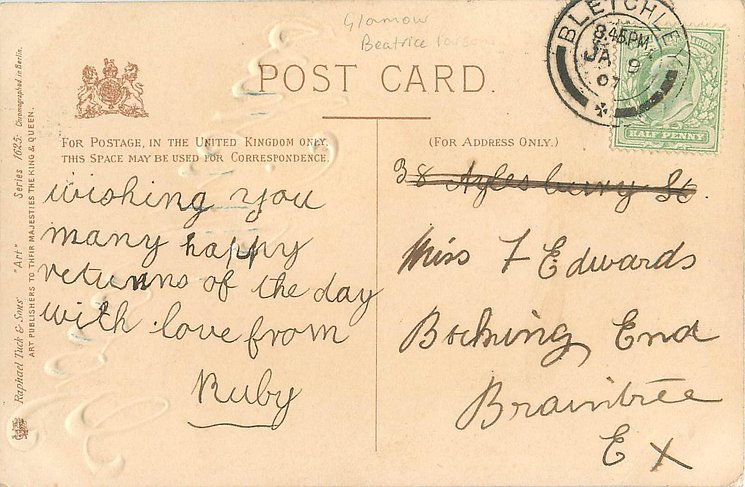 Glamour
Beatrice
POST CARD.
FOR POSTAGE, IN THE UNITED KINGDOM ONLY,
THIS SPACE MAY BE USED FOR CORRESPONDENCE.
wishing you
many happy
returns of the day
with love from
Ruby
(FOR ADDRESS ONLY.)
38 Aylesbury St.
Miss F Edwards
Bocking End
Braintree
Ex
BLETCHLEY
8.45PM
JA 9
07
HALF PENNY
Raphael Tuck & Sons' "Art" Series 1625. Chromographed in Berlin.
ART PUBLISHERS TO THEIR MAJESTIES THE KING & QUEEN.